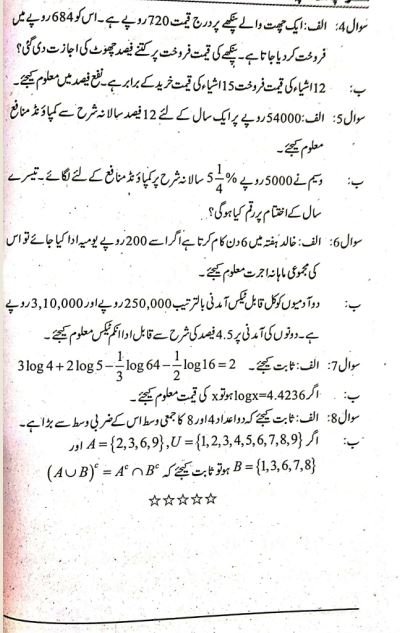 سوال4: الف: ایک چھت والے پنکھے پر درج قیمت 720 روپے ہے۔ اس کو 684 روپے میں
فروخت کر دیا جاتا ہے۔ پنکھے کی قیمت فروخت پر کتنے فیصد چھوٹ کی اجازت دی گئی؟
ب: 12 اشیاء کی قیمت فروخت 15 اشیاء کی قیمت خرید کے برابر ہے۔ نفع فیصد میں معلوم کیجئے۔
سوال5: الف: 54000 روپے پر ایک سال کے لئے 12 فیصد سالانہ شرح سے کمپاؤنڈ منافع
معلوم کیجئے۔
ب: وسیم نے 5000 روپے 5 1/4 % سالانہ شرح پر کمپاؤنڈ منافع کے لئے لگائے۔ تیسرے
سال کے اختتام پر رقم کیا ہوگی؟
سوال6: الف: خالد ہفتہ میں 6 دن کام کرتا ہے اگر اسے 200 روپے یومیہ ادا کیا جائے تو اس
کی مجموعی ماہانہ اجرت معلوم کیجئے۔
ب: دو آدمیوں کو کل قابل ٹیکس آمدنی بالترتیب 250,000 روپے اور 3,10,000 روپے
ہے۔ دونوں کی آمدنی پر 4.5 فیصد کی شرح سے قابل ادا انکم ٹیکس معلوم کیجئے۔
سوال7: الف: ثابت کیجئے۔ 3 log 4 + 2 log 5 − 1/3 log 64 − 1/2 log 16 = 2
ب: اگر logx=4.4236 ہو تو x کی قیمت معلوم کیجئے۔
سوال8: الف: ثابت کیجئے کہ دو اعداد 4 اور 8 کا جمعی وسط اس کے ضربی وسط سے بڑا ہے۔
ب: اگر U = {1,2,3,4,5,6,7,8,9}, A = {2,3,6,9} اور
B = {1,3,6,7,8} ہو تو ثابت کیجئے کہ (A ∪ B)ᶜ = Aᶜ ∩ Bᶜ
☆☆☆☆☆